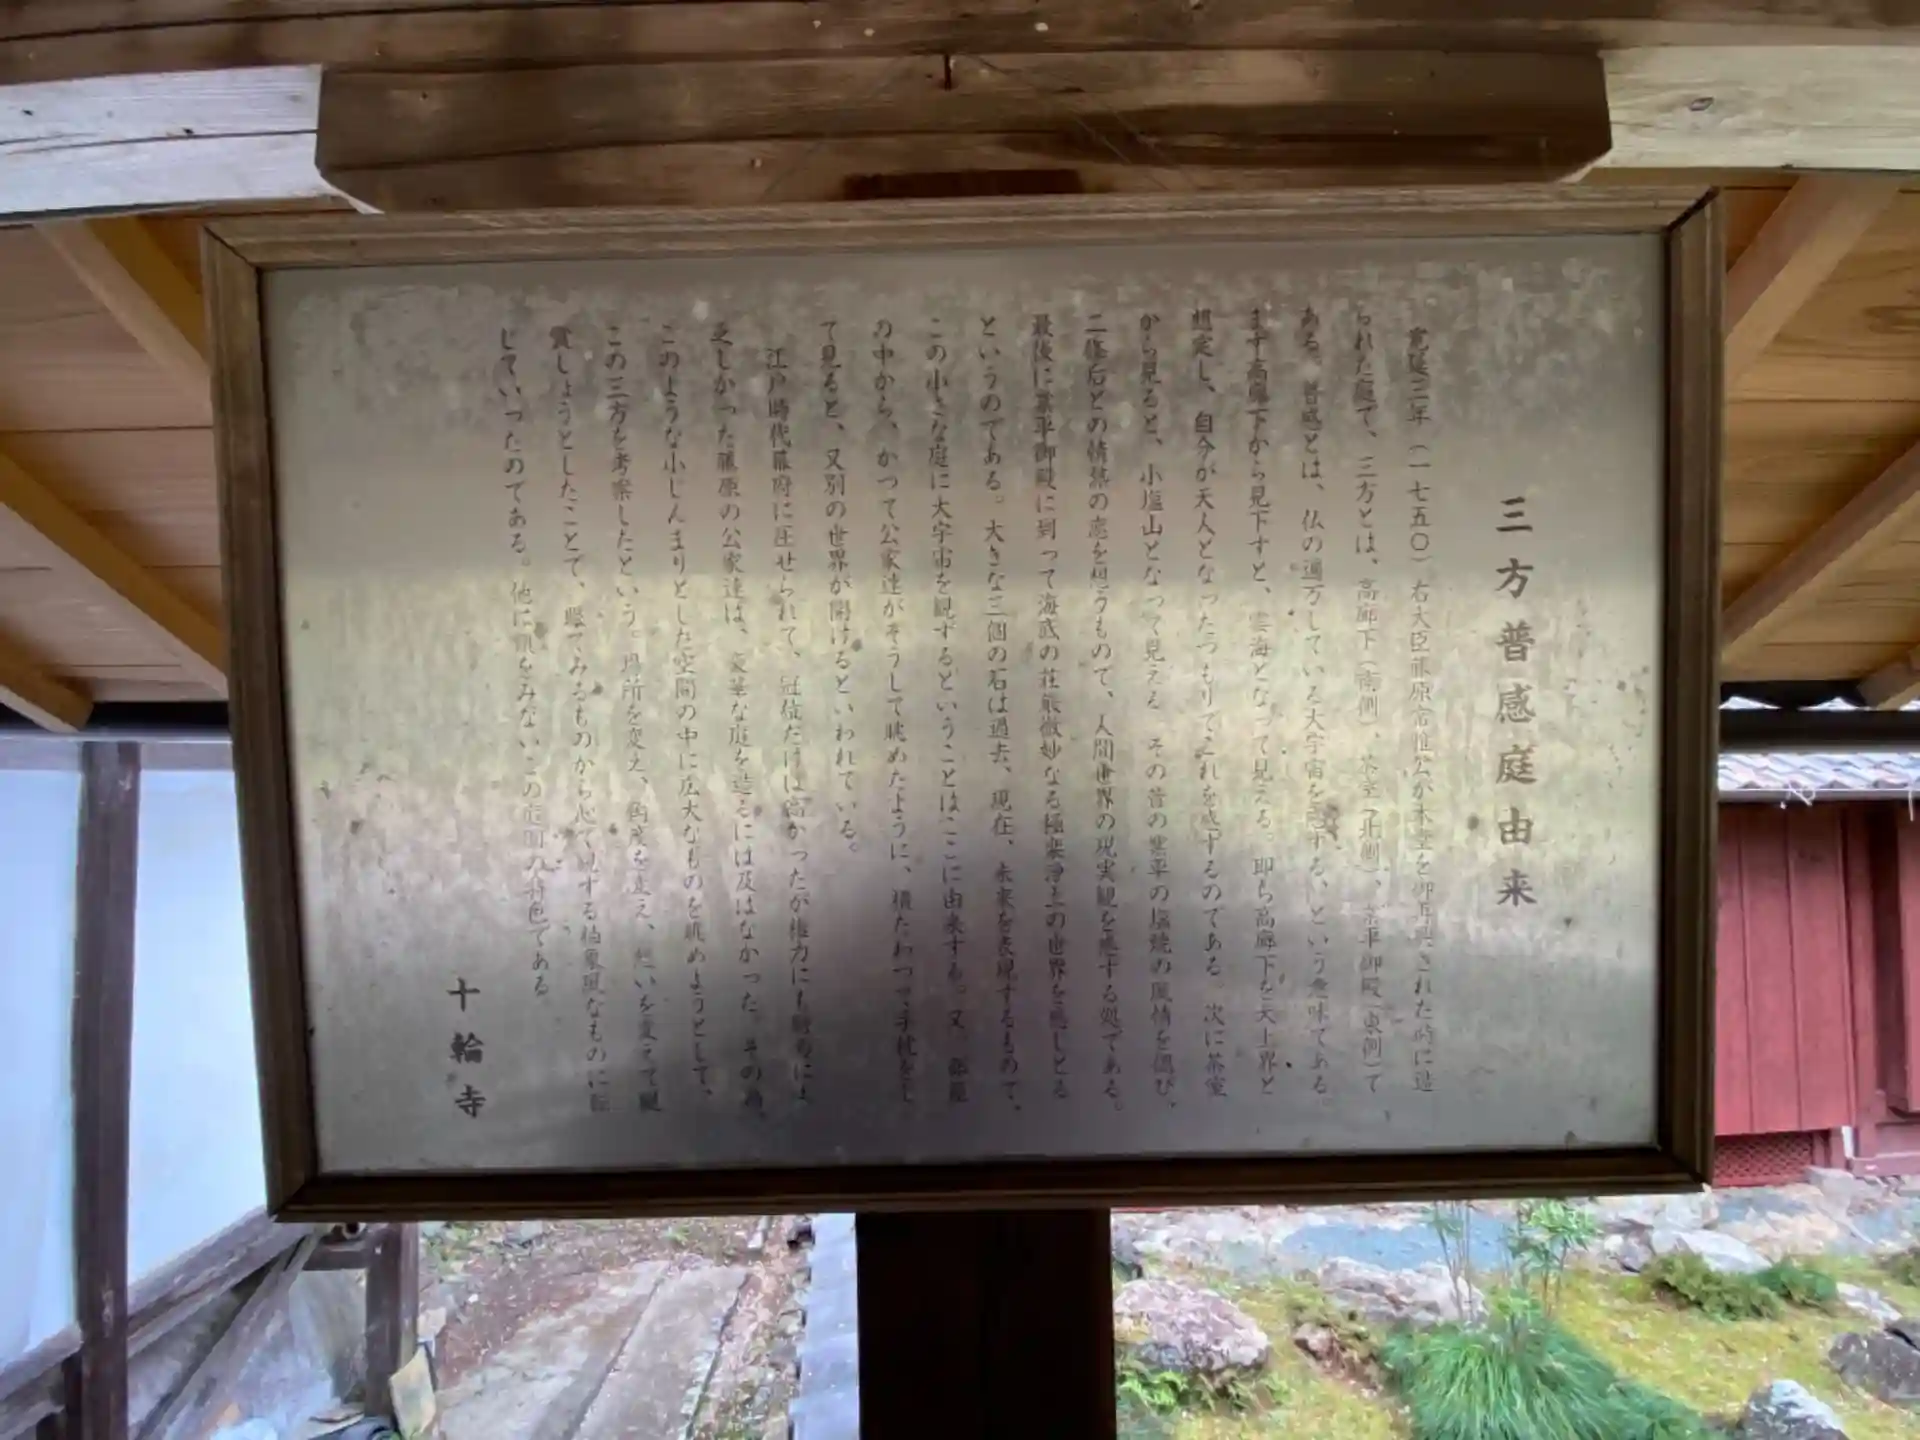 三方普感庭由来
寛延三年(一七五〇)右大臣藤原常雅公が本堂を御再興された時に造
られた庭で、三方とは、高廊下(南側)、茶室(北側)、業平御殿(東側)で
ある。普感とは、仏の遍万している大宇宙を感する、という意味である。
まず高廊下から見下すと、雲海となって見える。即ち高廊下を天上界と
想定し、自分が天人となったつもりでこれを感ずるのである。次に茶室
から見ると、小塩山となって見える。その昔の業平の塩焼の風情を偲び、
二條后との情熱の恋を想うもので、人間世界の現実観を感する処である。
最後に業平御殿に到って海底の荘厳微妙なる極楽浄土の世界を感じとる
というのである。大きな三個の石は過去、現在、未来を表現するもので、
この小さな庭に大宇宙を観ずるということはここに由来する。又、部屋
の中から、かつて公家達がそうして眺めたように、横たわって手枕をし
て見ると、又別の世界が開けるといわれている。
江戸時代幕府に圧せられて、冠位だけは高かったが権力にも財力にも
乏しかった藤原の公家達は、豪華な庭を造るには及ばなかった。その為、
このような小じんまりとした空間の中に広大なものを眺めようとして、
この三方を考案したという。場所を変え、角度を変え、想いを変えて観
賞しようとしたことで、眺てみるものから心て感する抽象風なものに転
じていったのである。他に類をみないこの庭園の特色である
十輪寺